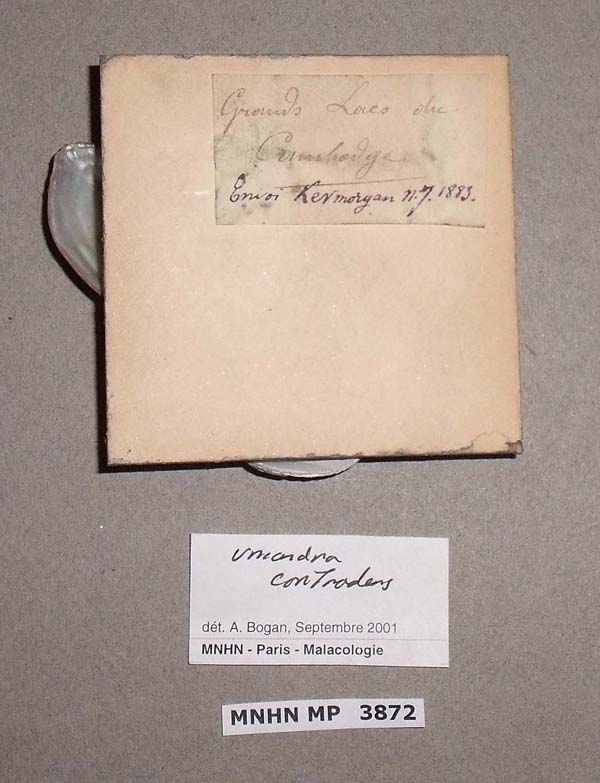 Grands Lacs du
Cambodge
Envoi Kermorgan n.7. 1883.
Uniandra
contradens
dét. A. Bogan, Septembre 2001
MNHN - Paris - Malacologie
MNHN MP 3872